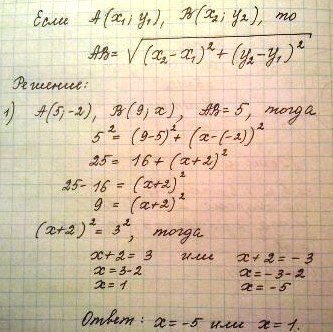 Если A(x₁; y₁), B(x₂; y₂), то
AB = √((x₂-x₁)² + (y₂-y₁)²)
Решение:
1) A(5;-2), B(9; x), AB=5, тогда
5² = (9-5)² + (x-(-2))²
25 = 16 + (x+2)²
25-16 = (x+2)²
9 = (x+2)²
(x+2)² = 3², тогда
x+2 = 3 или x+2 = -3
x = 3-2 x = -3-2
x = 1 x = -5
Ответ: x = -5 или x = 1.